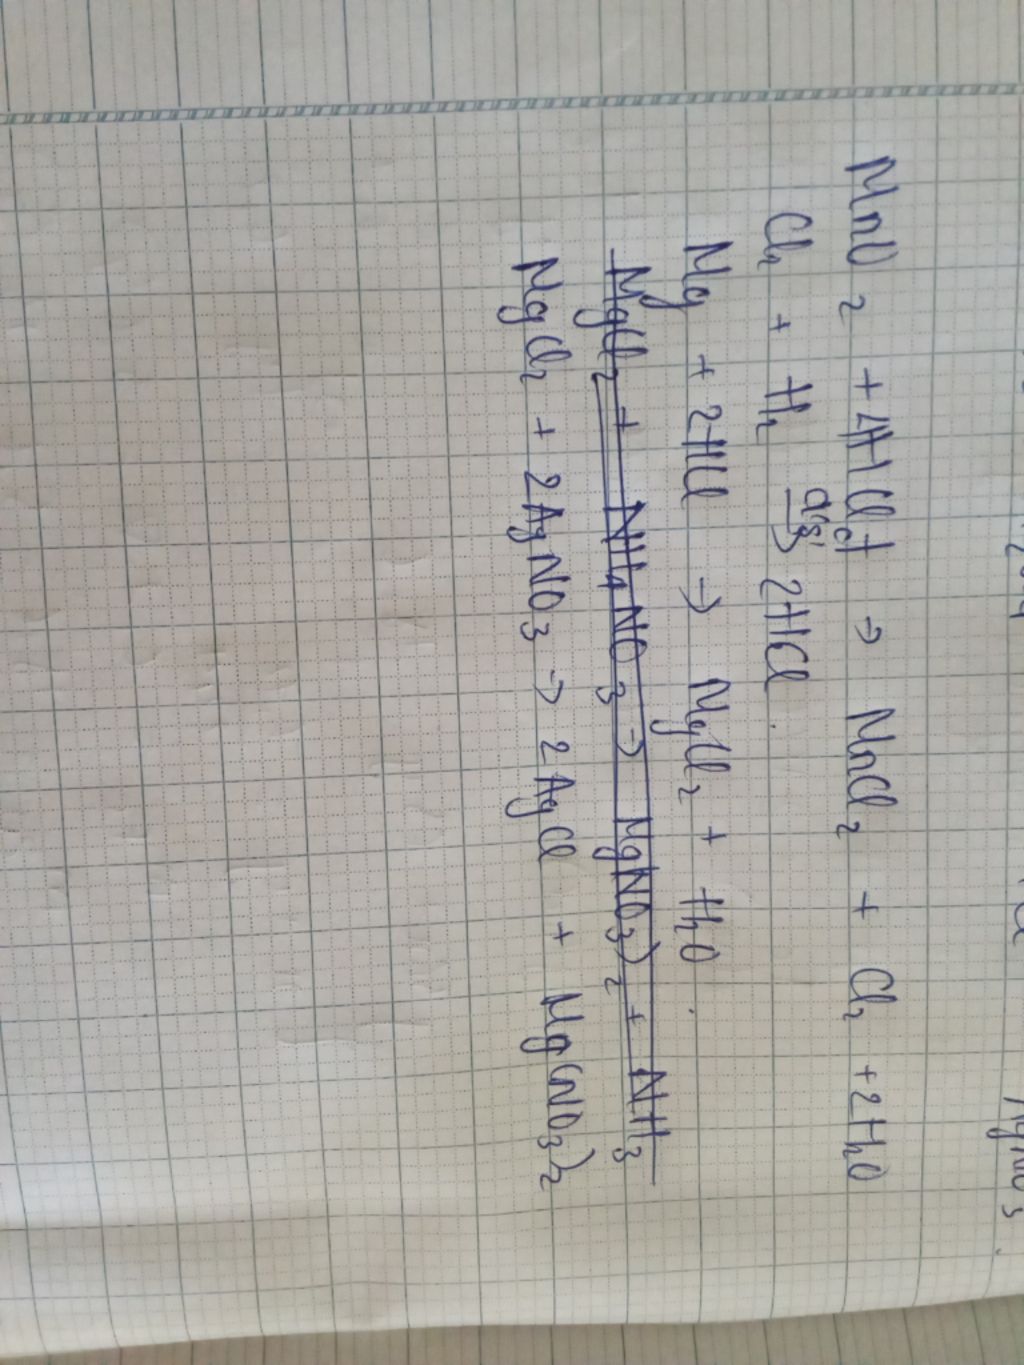 MnO2 + 4HClđ → MnCl2 + Cl2 + 2H2O
Cl2 + H2 →(a/s') 2HCl.
Mg + 2HCl → MgCl2 + H2O.
MgCl2 + NH4NO3 → MgNO3)2 + NH3
MgCl2 + 2AgNO3 → 2AgCl + Mg(NO3)2
AgNO3.